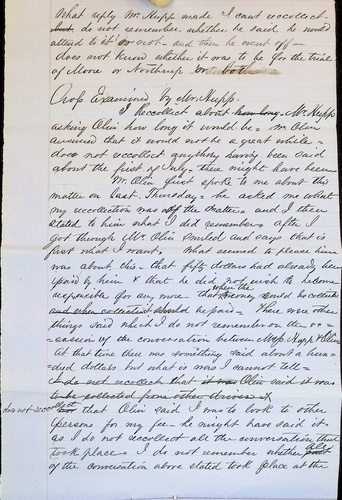 What reply Mr. Hupp made I cant recollect -
but do not remember whether he said he would
attend to it or not - and then he went off -
does not know whether it was to be for the trial
of Moore or Northrup or both
Cross Examined by Mr. Hupp.
I recollect about how long Mr. Hupp
asking Olin how long it would be = Mr. Olin
answered that it would not be a great while -
does not recollect anything having been said
about the first of July - there might have been
Mr. Olin first spoke to me about this
matter on last Thursday - he asked me what
my recollection was of the matter - and I then
stated to him what I did remember - after I
got through Mr. Olin smiled and says that is
just what I want - What seemed to please him
was about this - that fifty dollars had already been
paid by him & that he did not wish to become
responsible for any more - that when the money could be collected
and when collected should be paid - There were other
things said which I do not remember on the oc =
casion of the conversation between Mess Hupp & Olin
At that time there was something said about a hun =
dred dollars but what is was I cannot tell =
I do not recollect that it was Olin said it was
to be collected from other
does not recollect that Olin said I was to look to other
persons for my fee - he might have said it -
as I do not recollect all the conversation that
took place - I do not remember whether all
of the conversation above stated took place at the